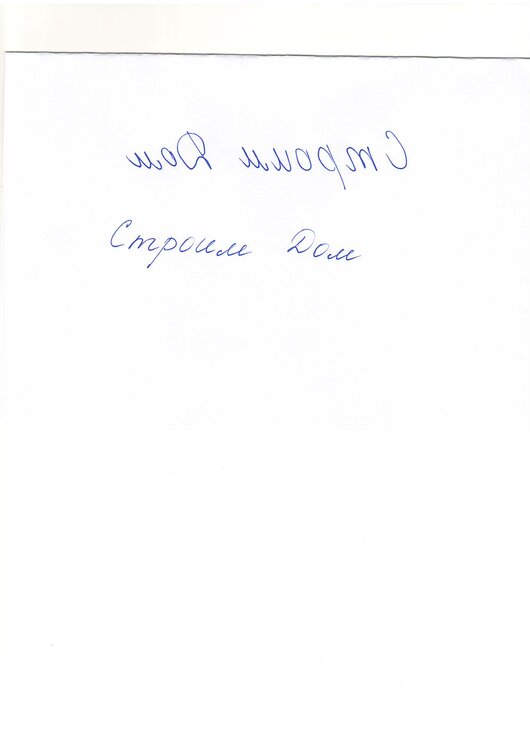 Строим Дом
Строим Дом